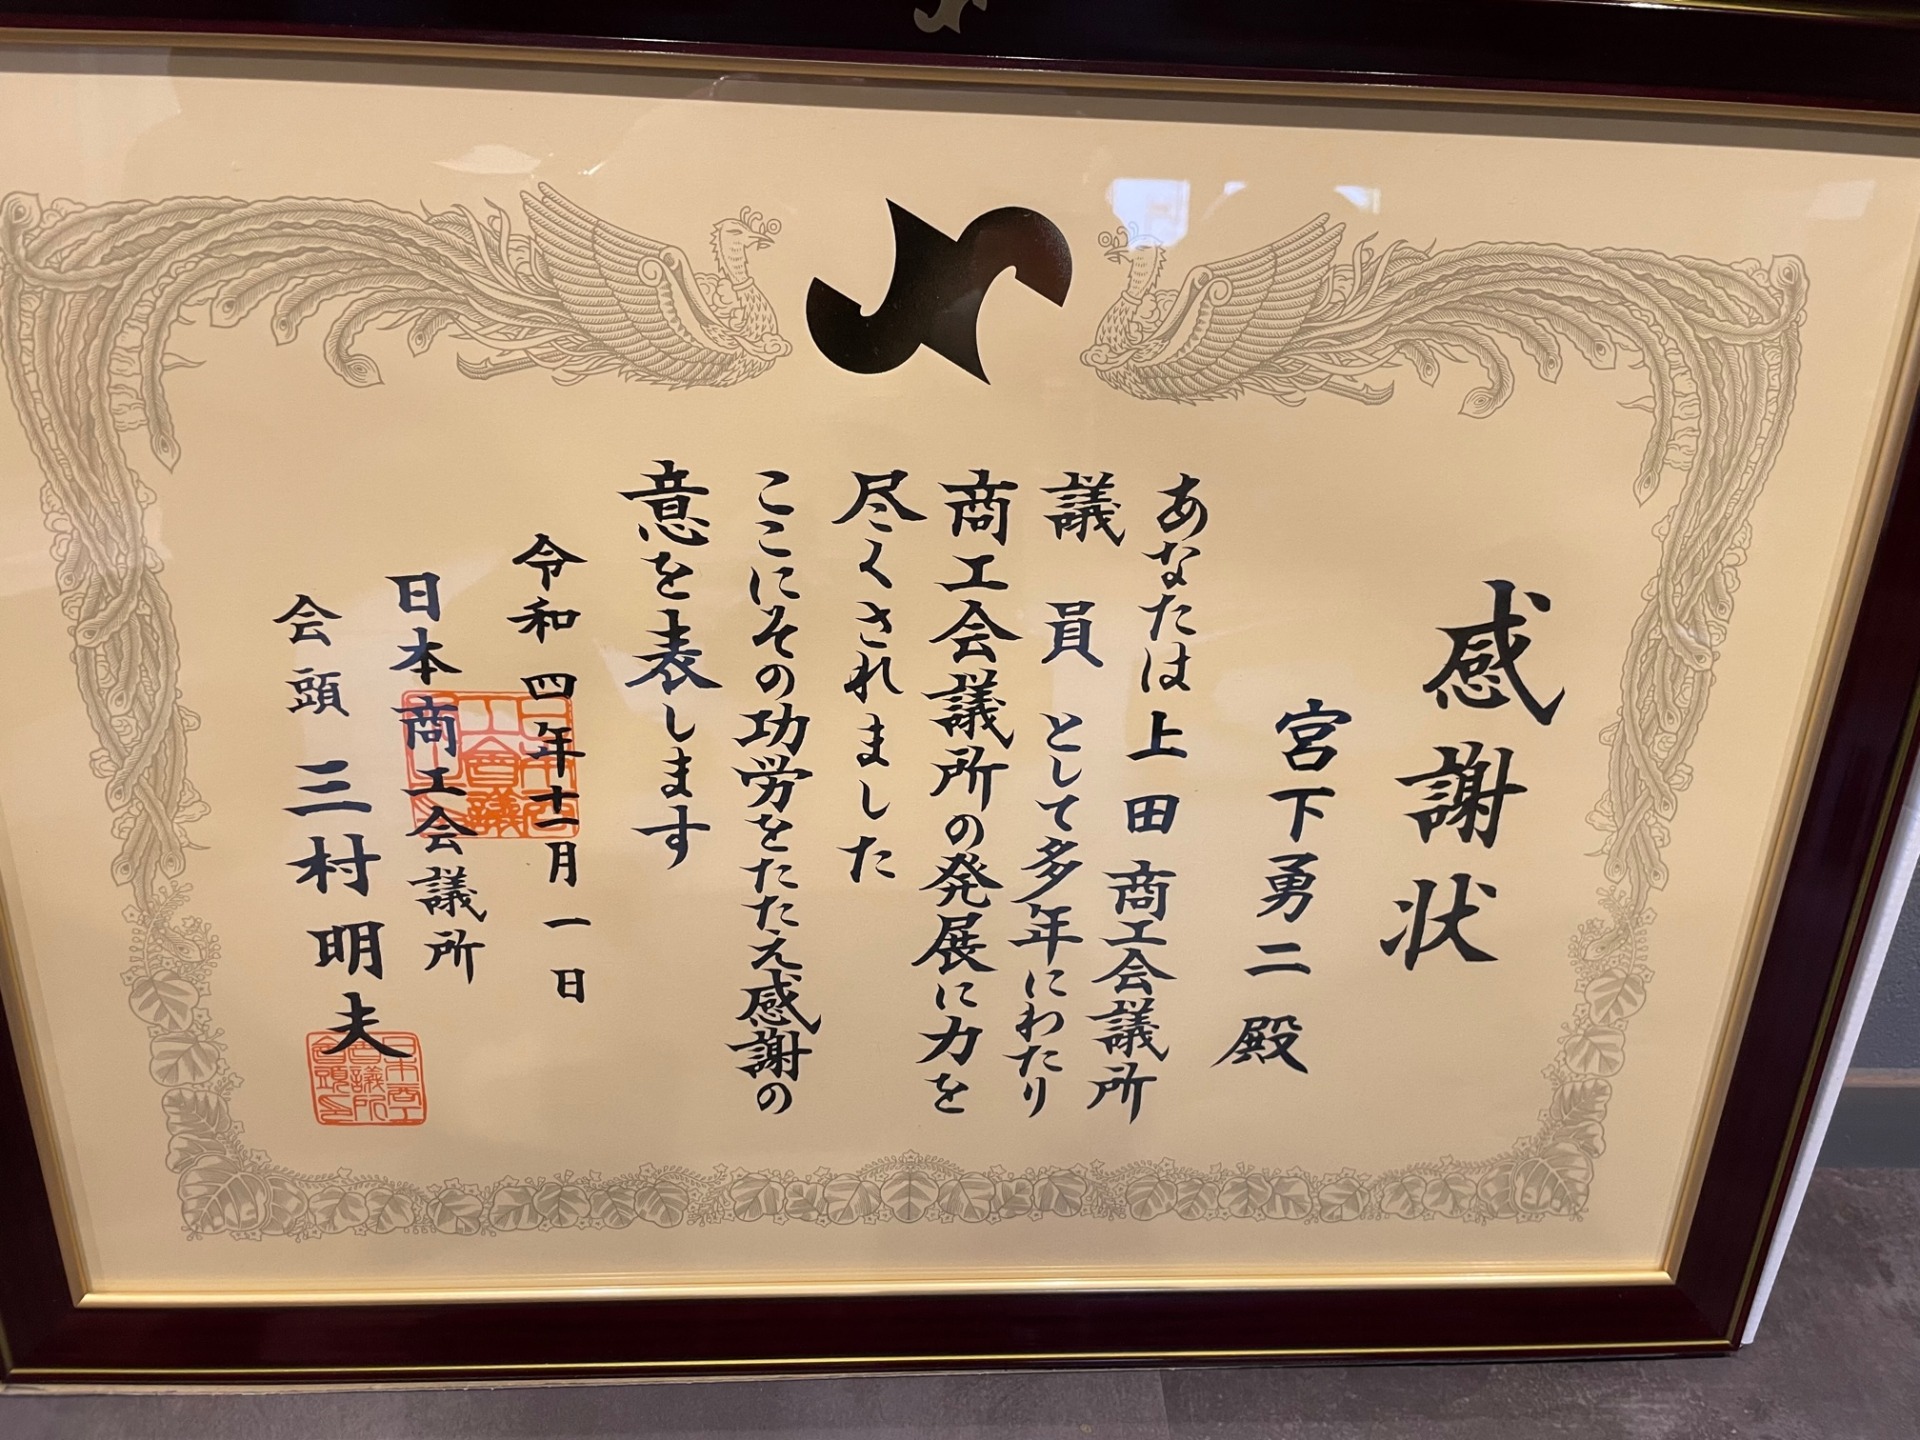 感謝状
宮下勇二殿
あなたは上田商工会議所
議員として多年にわたり
商工会議所の発展に力を
尽くされました
ここにその功労をたたえ感謝の
意を表します
令和四年十一月一日
日本商工会議所
会頭 三村明夫
日本商工
会議所
会頭之印